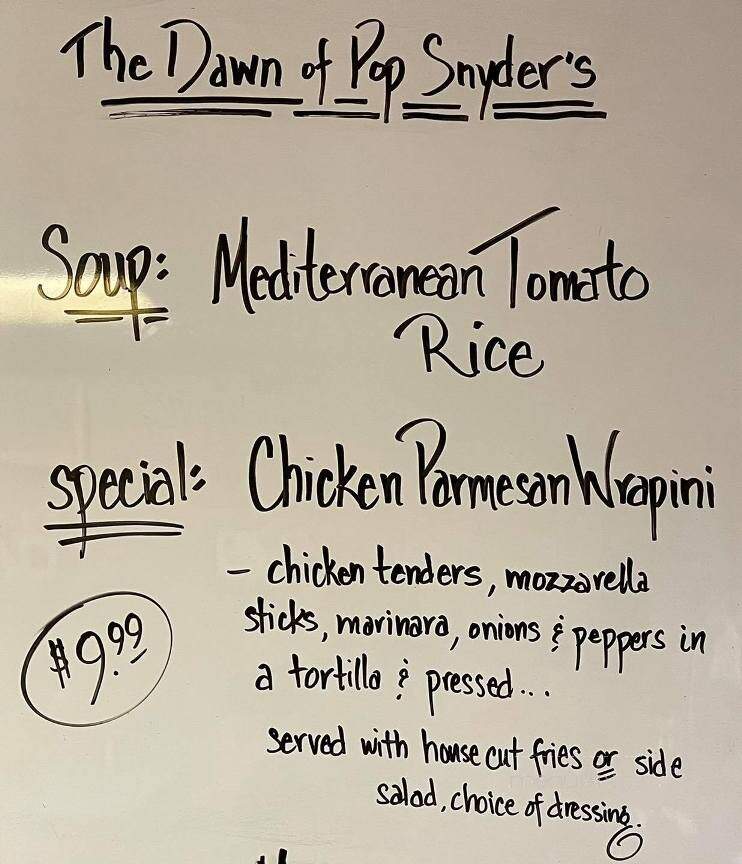 The Dawn of Pop Snyder's
Soup: Mediterranean Tomato
Rice
special: Chicken Parmesan Wrapini
- chicken tenders, mozzarella
sticks, marinara, onions & peppers in
a tortilla & pressed...
$9.99
served with house cut fries or side
salad, choice of dressing.